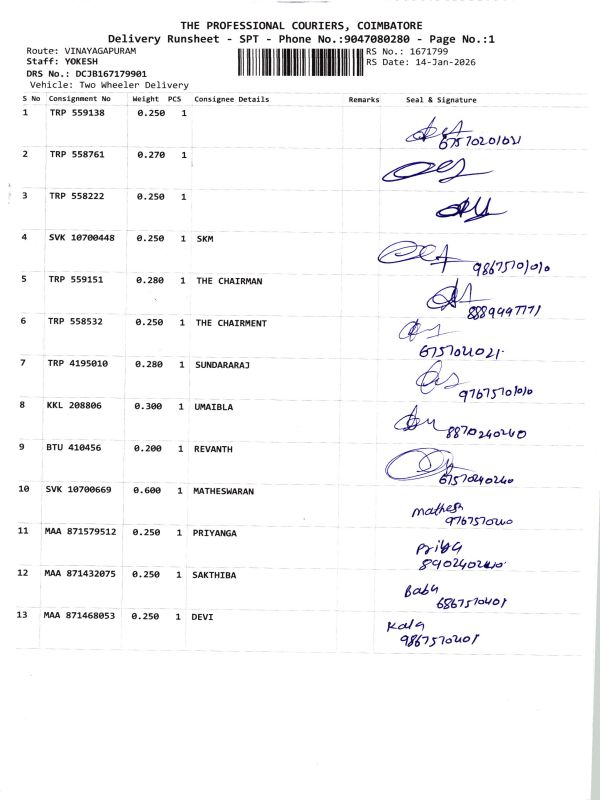 THE PROFESSIONAL COURIERS, COIMBATORE
Delivery Runsheet - SPT - Phone No.:9047080280 - Page No.:1
Route: VINAYAGAPURAM RS No.: 1671799
Staff: YOKESH RS Date: 14-Jan-2026
DRS No.: DCJB167179901
Vehicle: Two Wheeler Delivery
S No Consignment No Weight PCS Consignee Details Remarks Seal & Signature
1 TRP 559138 0.250 1
2 TRP 558761 0.270 1
3 TRP 558222 0.250 1
4 SVK 10700448 0.250 1 SKM
5 TRP 559151 0.280 1 THE CHAIRMAN
8889497771
6 TRP 558532 0.250 1 THE CHAIRMENT
6757021021
7 TRP 4195010 0.280 1 SUNDARARAJ
8 KKL 208806 0.300 1 UMAIBLA
8870240240
9 BTU 410456 0.200 1 REVANTH
67570240240
10 SVK 10700669 0.600 1 MATHESWARAN
Mathesh
11 MAA 871579512 0.250 1 PRIYANGA
Priya
12 MAA 871432075 0.250 1 SAKTHIBA
Babu
13 MAA 871468053 0.250 1 DEVI
Kala